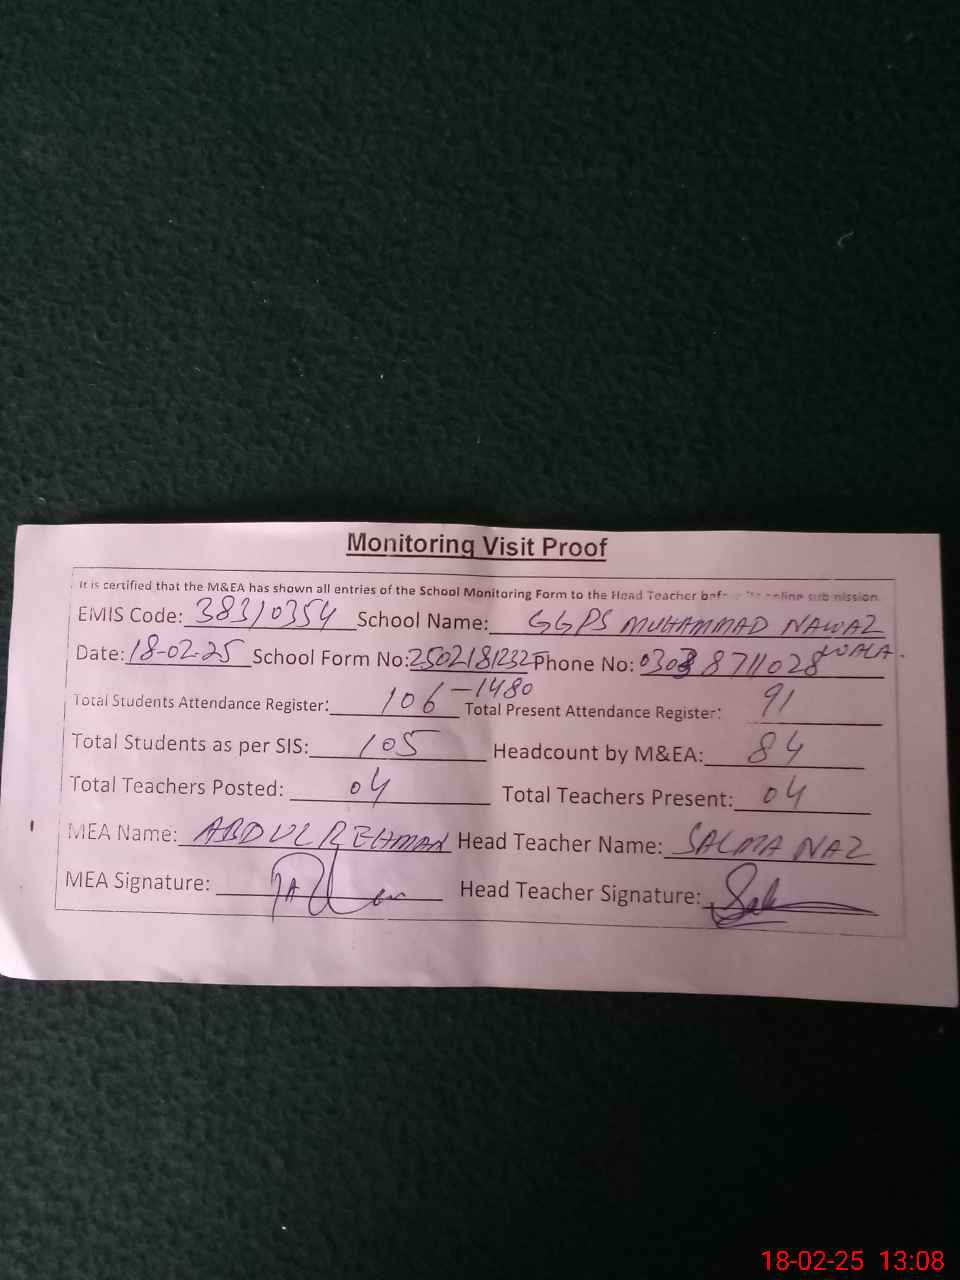 Monitoring Visit Proof
It is certified that the M&EA has shown all entries of the School Monitoring Form to the Head Teacher before its online submission.
EMIS Code: 38310354 School Name: GGPS MUHAMMAD NAWAZ WALA.
Date: 18-02-25 School Form No: 2502181232 -1480 Phone No: 0303 8711028
Total Students Attendance Register: 106 Total Present Attendance Register: 91
Total Students as per SIS: 105 Headcount by M&EA: 84
Total Teachers Posted: 04 Total Teachers Present: 04
MEA Name: ABDUL REHMAN Head Teacher Name: SALMA NAZ
MEA Signature: Head Teacher Signature:
18-02-25 13:08